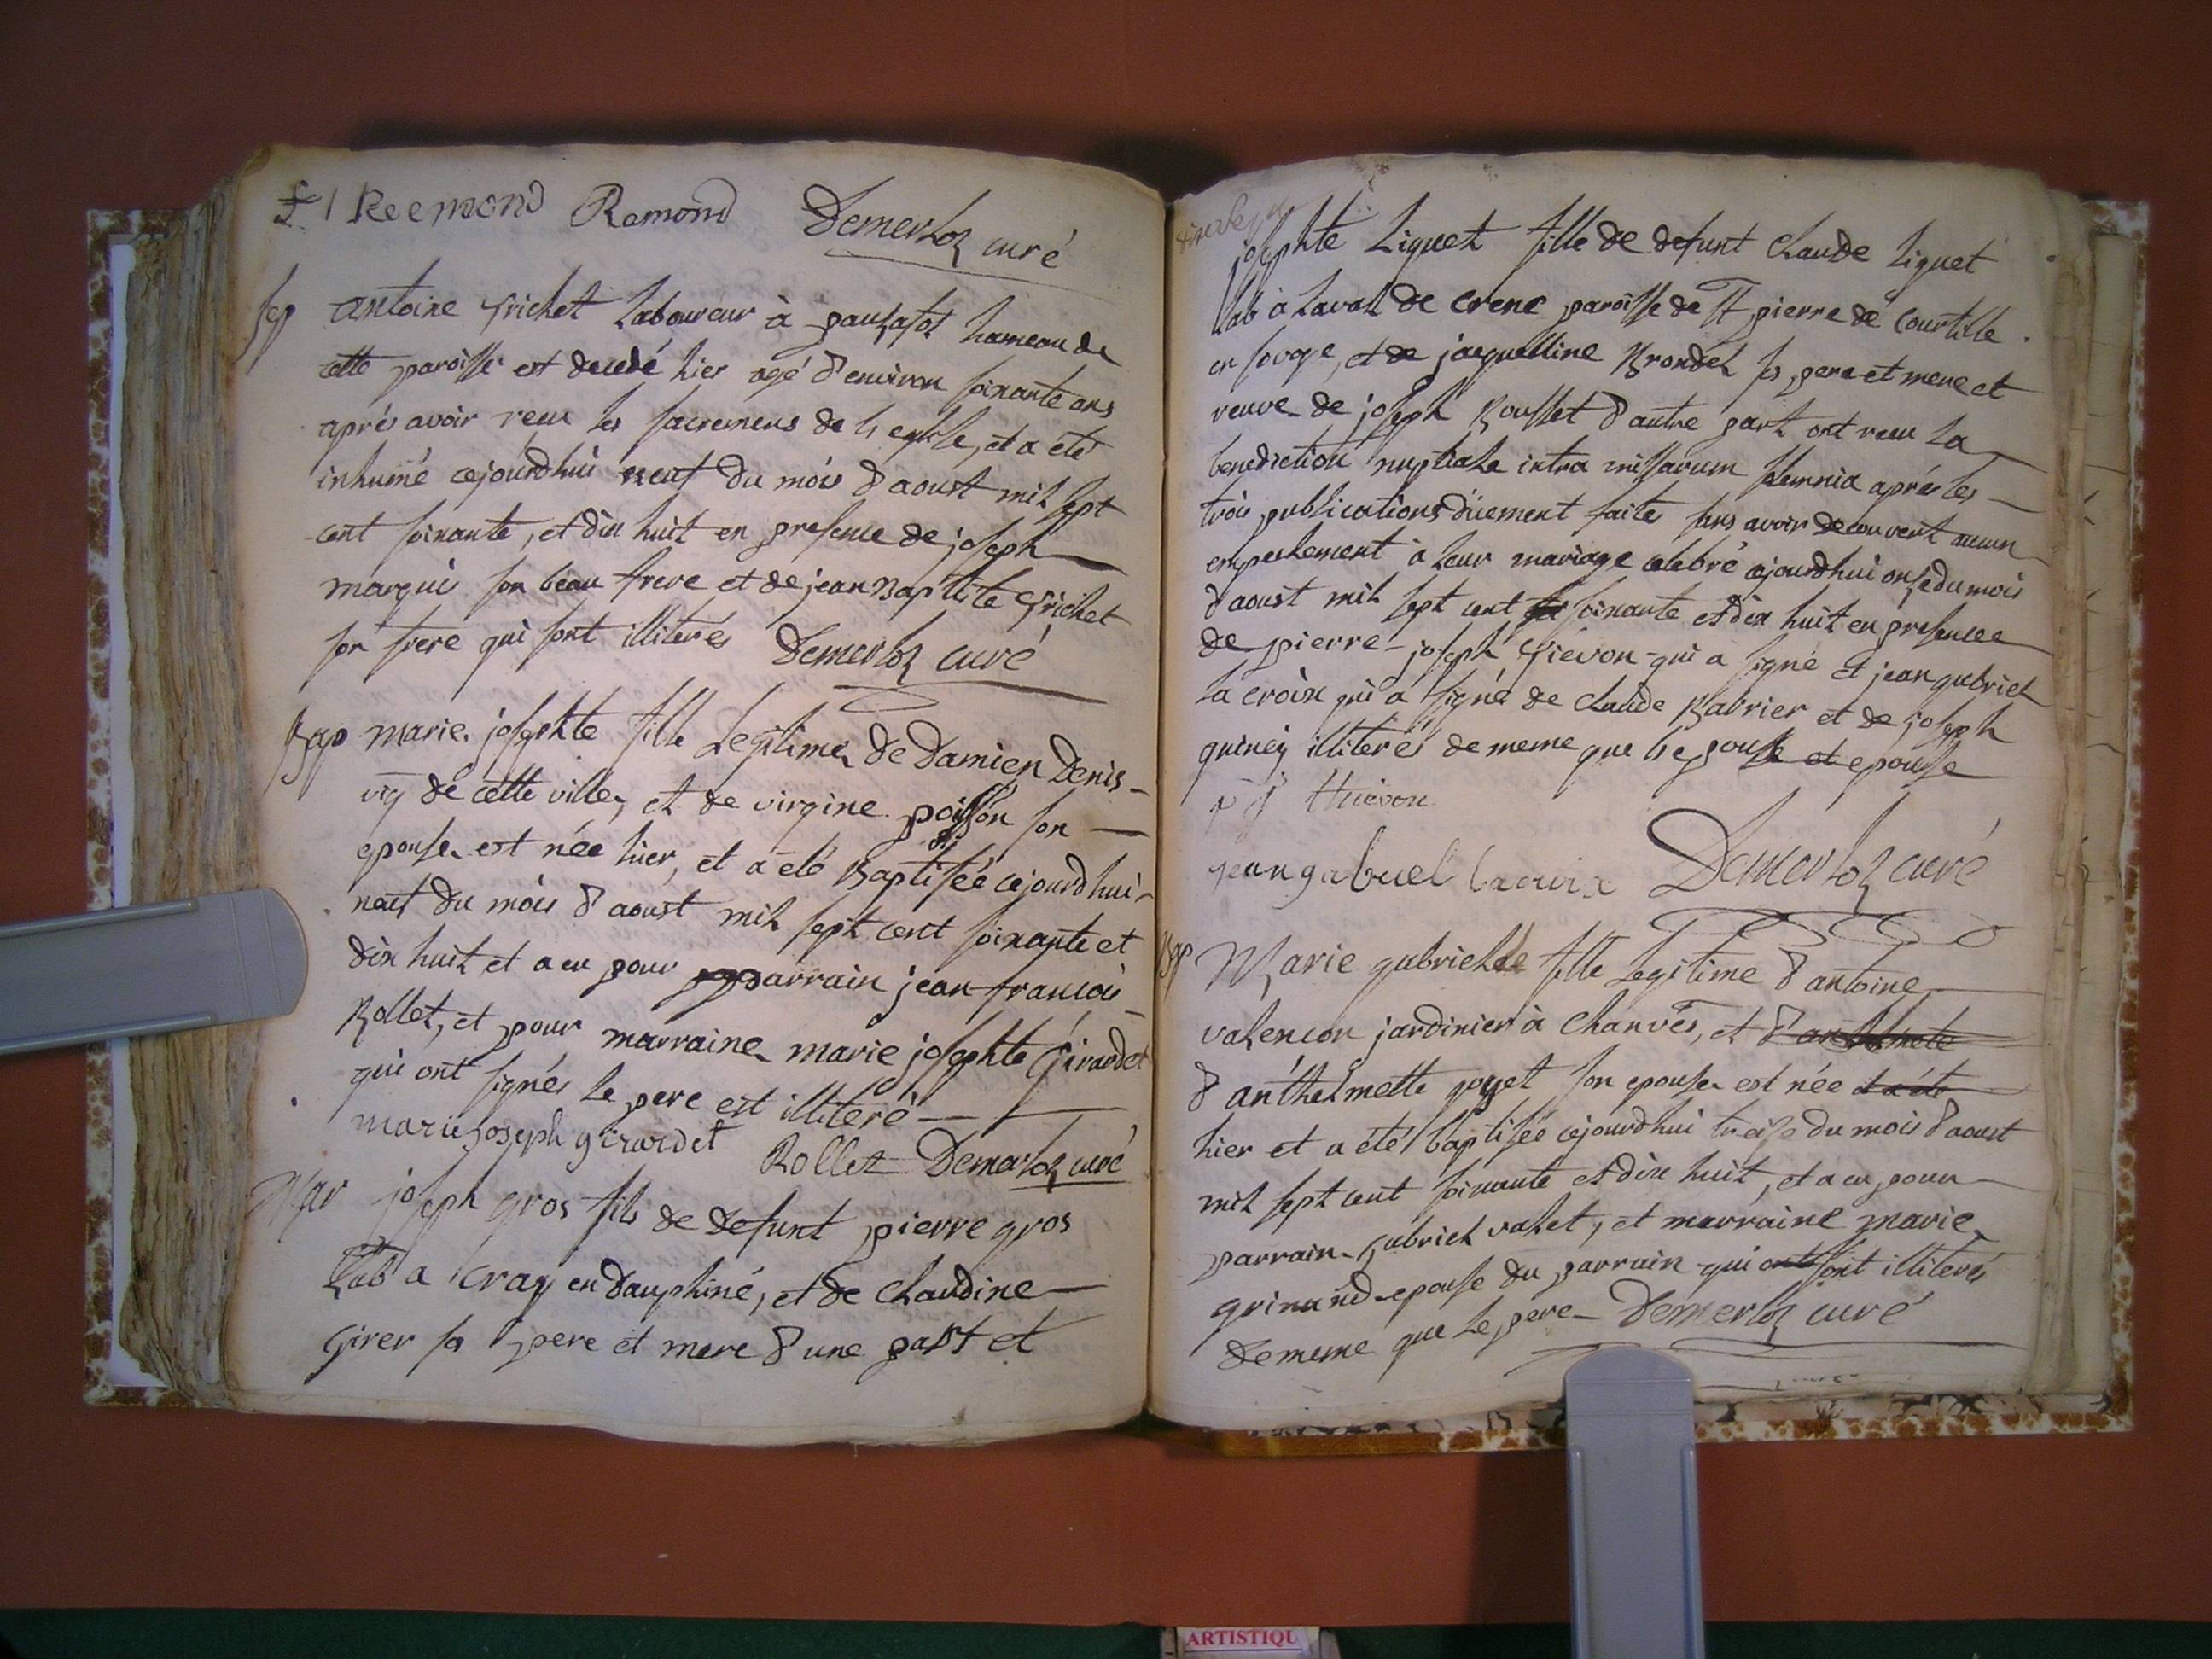 Reemond Ramond Demerloz curé
Sep antoine frichet Laboureur à hameau de
cette paroisse est decedé hier agé d'environ soixante ans
aprés avoir reçu les sacremens de l'eglise, et a été
inhumé cejourdhui neuf du mois d'aoust mil sept
cent soixante, et dix huit en presence de joseph
marqui son beau frere et de jean Baptiste frichet
son frere qui sont illiterés Demerloz curé
Bap marie josephte fille Legitime de Damien Denis
vig de cette ville, et de virgine poisson son
epouse est née hier, et a eté Baptisée cejourdhui
neuf du mois d'aoust mil sept cent soixante et
dix huit et a eu pour parrain jean françois
Rollet, et pour marraine marie josephte Girardet
qui ont signés le pere est illiteré
marie joseph girardet Rollet Demerloz curé
Mar joseph gros fils de defunt pierre gros
Lab a Cray en Dauphiné, et de Claudine
Girer sa pere et mere d'une part et
josephte Liquet fille de defunt Claude Liquet
Lab à Laval de Crene paroisse de St pierre de Courtille
en savoye, et de jacquelline Brondel ses pere et mere et
veuve de joseph Rousset d'autre part ont reçu La
benediction nuptiale intra missarum solemnia aprés les
trois publications düement faites sans avoir decouvert aucun
empechement à leur mariage celebré cejourdhui onze du mois
d'aoust mil sept cent soixante et dix huit en presence
de pierre joseph Thievon qui a signé et jean gabriel
La croix qui a signé de Claude Babrier et de joseph
quiney illiterés de meme que l'epouse et epouse
p j thievon
jean gabriel lacroix Demerloz curé
Bap Marie gabrielle fille Legitime d'antoine
valençon jardinier à Chanves, et d'anthelmete
d'anthelmette goyet son epouse est née et a été
hier et a été baptisée cejourdhui treize du mois d'aoust
mil sept cent soixante et dix huit, et a eu pour
parrain gabriel valet, et marraine marie
grinand epouse du parrain qui ont sont illiterés
de meme que le pere Demerloz curé
ARTISTIQU